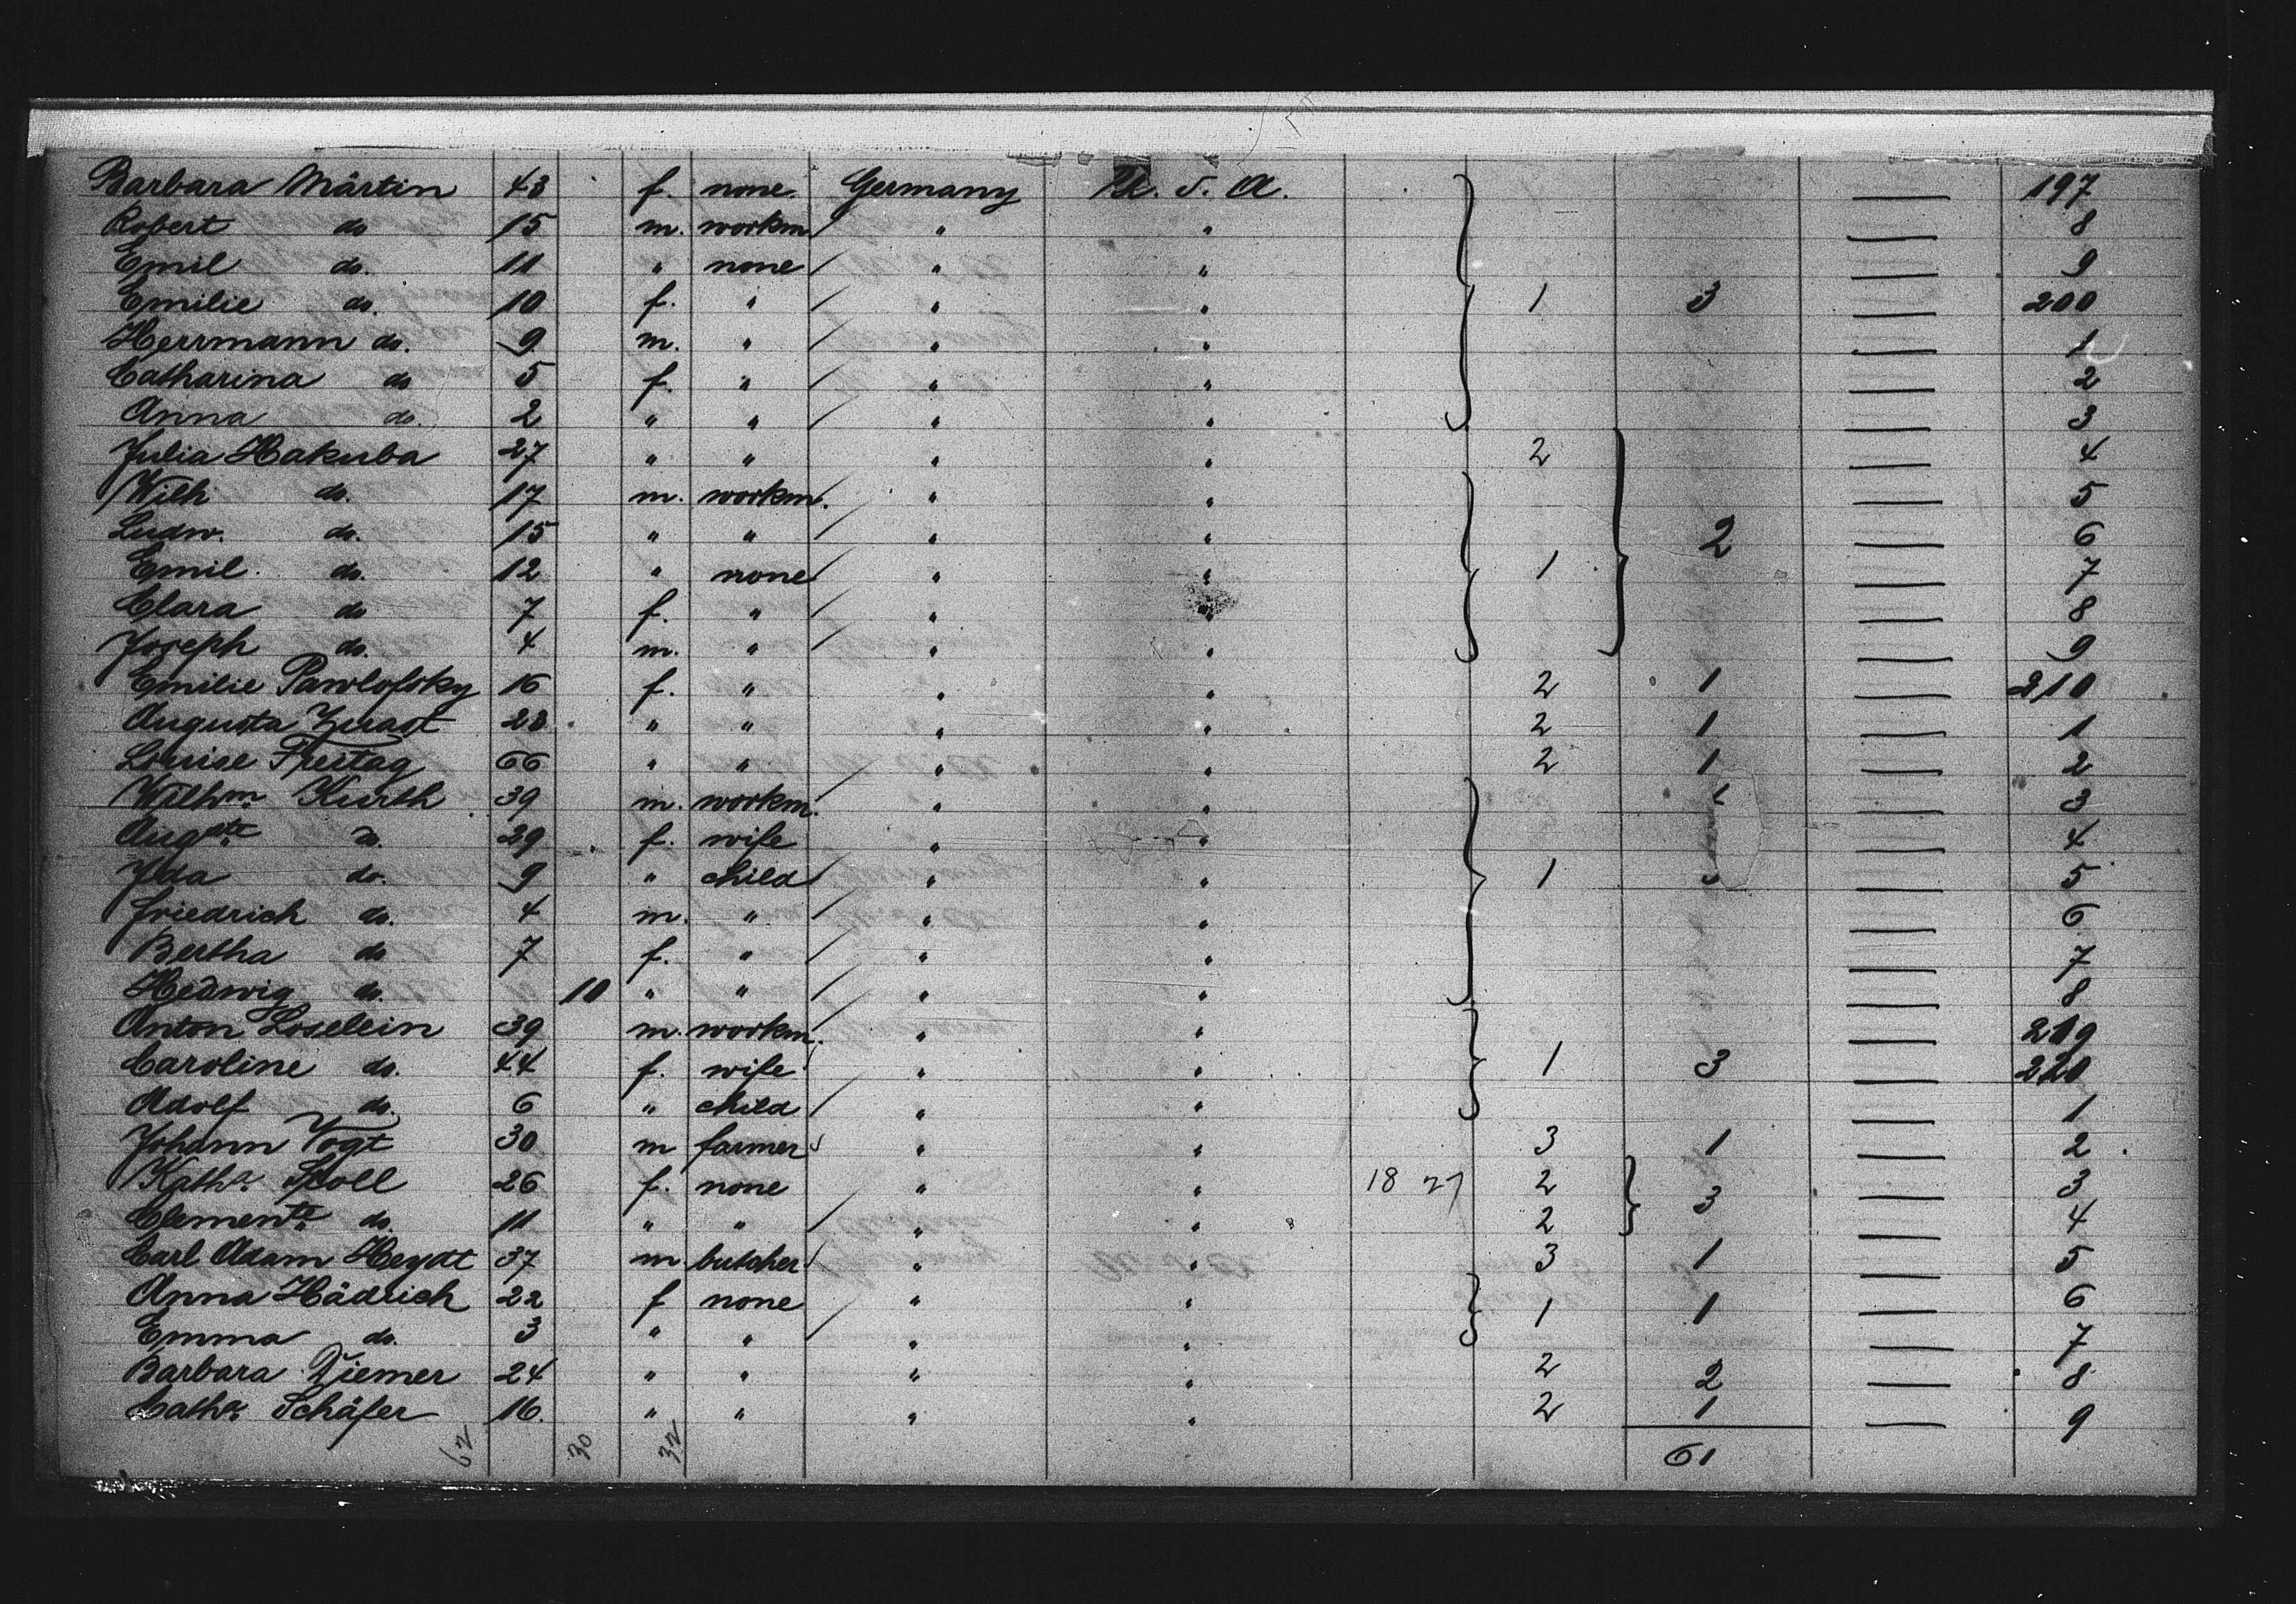 Barbara Märtin 43 f. none. Germany U. S. A. — 197
Robert do 15 m. workm. " " — 8
Emil do. 11 " none " " — 9
Emilie do. 10 f. " " " 1 3 — 200
Herrmann do. 9 m. " " " — 1
Catharina do 5 f. " " " — 2
Anna do. 2 " " " " — 3
Julia Hakuba 27 " " " " 2 — 4
Wilh do. 17 m. workm. " " — 5
Ludw. do. 15 " " " " 2 — 6
Emil do. 12 " none " " 1 — 7
Clara do 7 f. " " " — 8
Joseph do. 4 m. " " " — 9
Emilie Pawlofsky 16 f. " " " 2 1 — 210
Augusta 28 " " " " 2 1 — 1
Louise Freitag 66 " " " " 2 1 — 2
Wilhm Kurth 39 m. workm. " " — 3
Augste do. 29 f. wife " " — 4
Ida do. 9 " child " " 1 — 5
Friedrich do. 4 m. " " " — 6
Bertha do 7 f. " " " — 7
Hedwig do. 10 " " " " — 8
Anton Loselein 39 m. workm. " " — 219
Caroline do. 44 f. wife " " 1 3 — 220
Adolf do. 6 " child " " — 1
Johann Vogt 30 m farmer " " 3 1 — 2
Katha Stoll 26 f. none " " 18 27 2 3 — 3
Clemente do. 11 " " " " 2 — 4
Carl Adam Heydt 37 m butcher " " 3 1 — 5
Anna Hädrich 22 f none " " 1 1 — 6
Emma do. 3 " " " " — 7
Barbara Diemer 24 " " " " 2 2 — 8
Catha Schäfer 16. " " " " 2 1 — 9
62 30 32 61